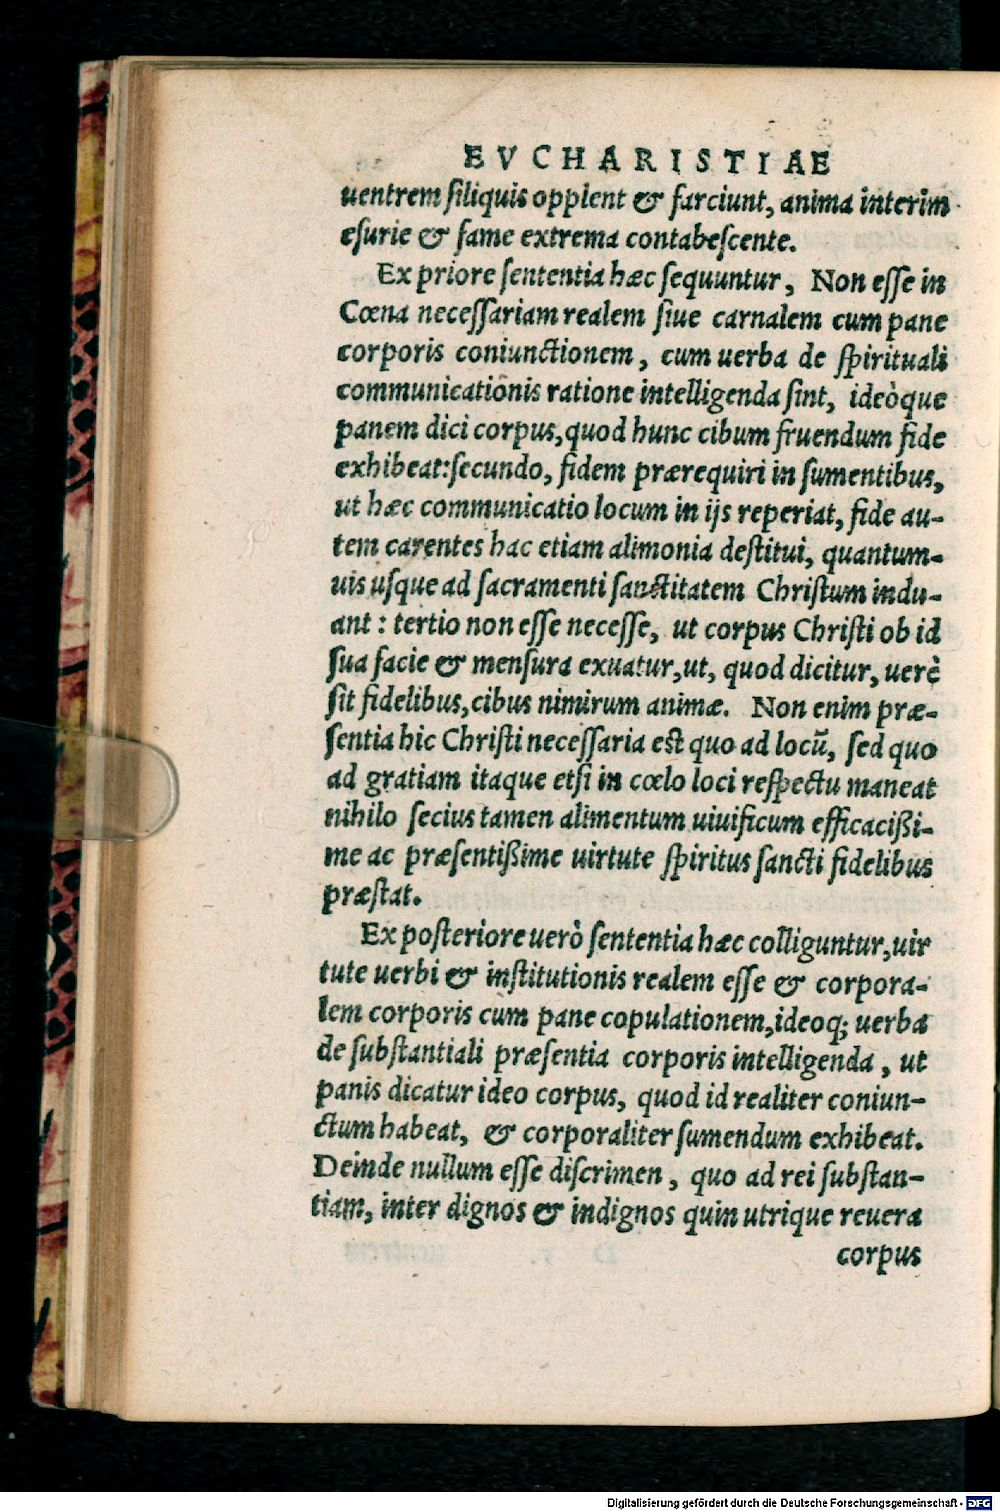 EVCHARISTIAE
uentrem siliquis opplent & farciunt, anima interim
esurie & fame extrema contabescente.
Ex priore sententia hæc sequuntur, Non esse in
Cœna necessariam realem siue carnalem cum pane
corporis coniunctionem, cum uerba de spirituali
communicationis ratione intelligenda sint, ideòque
panem dici corpus, quod hunc cibum fruendum fide
exhibeat: secundo, fidem prærequiri in sumentibus,
ut hæc communicatio locum in ijs reperiat, fide au-
tem carentes hac etiam alimonia destitui, quantum-
uis usque ad sacramenti sanctitatem Christum indu-
ant: tertio non esse necesse, ut corpus Christi ob id
sua facie & mensura exuatur, ut, quod dicitur, uerè
sit fidelibus, cibus nimirum animæ. Non enim præ-
sentia hic Christi necessaria est quo ad locũ, sed quo
ad gratiam itaque etsi in cœlo loci respectu maneat
nihilo secius tamen alimentum uiuificum efficacißi-
me ac præsentißime uirtute spiritus sancti fidelibus
præstat.
Ex posteriore uerò sententia hæc colliguntur, uir
tute uerbi & institutionis realem esse & corpora-
lem corporis cum pane copulationem, ideoq; uerba
de substantiali præsentia corporis intelligenda, ut
panis dicatur ideo corpus, quod id realiter coniun-
ctum habeat, & corporaliter sumendum exhibeat.
Deinde nullum esse discrimen, quo ad rei substan-
tiam, inter dignos & indignos quin utrique reuera
corpus
Digitalisierung gefördert durch die Deutsche Forschungsgemeinschaft - DFG